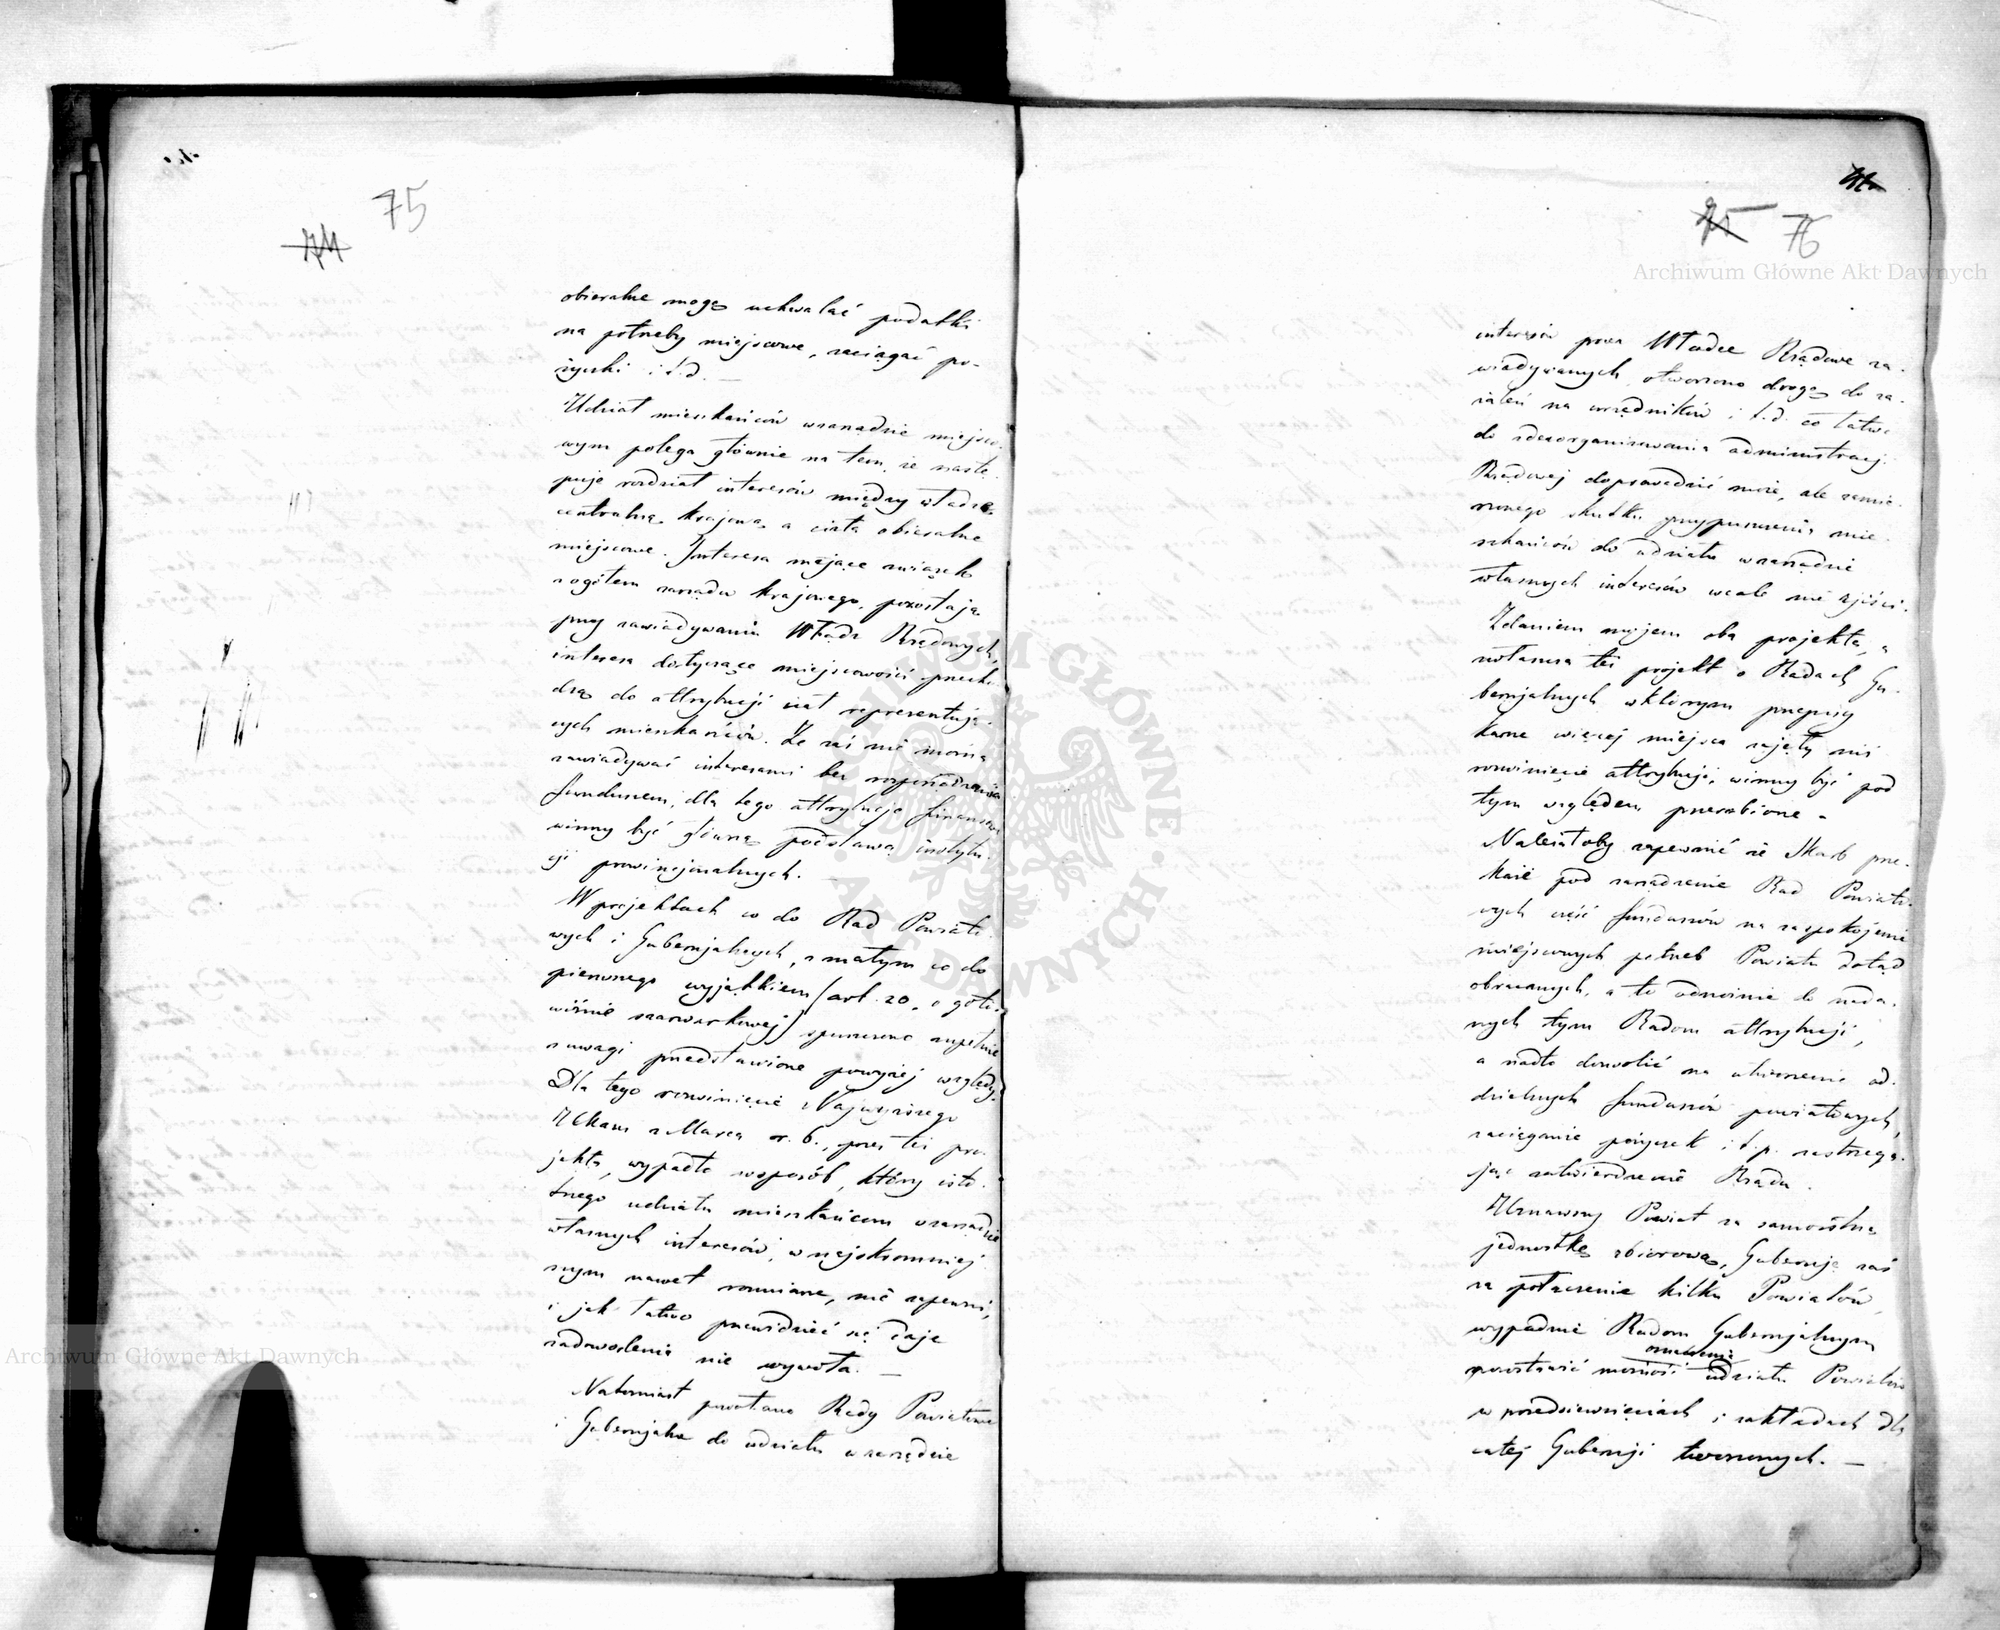 75
74
obieralne mogą uchwalać podatki
na potrzeby miejscowe, zaciągać po-
życzki i t. d. —
Udział mieszkańców w zarządzie miejsco-
wym polega głównie na tem, że nastę-
puje rozdział interesów między władzę
centralną krajową a ciała obieralne
miejscowe. Interesa mające związek
z ogółem zarządu krajowego, pozostają
przy zawiadywaniu Władz Rządowych,
interesa dotyczące miejscowości przecho-
dzą do attrybucji ciał reprezentują-
cych mieszkańców. Że zaś nie można
zawiadywać interesami bez rozporządzania
funduszem, dla tego attrybucje finansowe
winny być główną podstawą instytu-
cji prowincjonalnych. —
W projektach co do Rad Powiato-
wych i Gubernjalnych, z małym co do
pierwszego wyjątkiem (art. 20, o goto-
wiźnie szarwarkowej) spuszczono zupełnie
z uwagi przedstawione powyżej względy.
Dla tego rozwinięcie Najwyższego
Ukazu z Marca r. b., przez te pro-
jekta, wypadło w sposób, który isto-
tnego udziału mieszkańcom w zarządzie
własnych interesów, w najskromniej-
szym nawet rozmiarze, nie zapewni,
i jak łatwo przewidzieć się daje
zadowolenia nie wywoła. —
Natomiast powołano Rady Powiatowe
i Gubernjalne do udziału w zarządzie
75 76
Archiwum Główne Akt Dawnych
interesów przez Władze Rządowe za-
wiadywanych, otworzono drogę do za-
żaleń na urzędników i t. d. co łatwo
do zdezorganizowania administracji
Rządowej doprowadzić może, ale zamie-
rzonego skutku przypuszczenia mie-
szkańców do udziału w zarządzie
własnych interesów wcale nie ziści.
Zdaniem mojem oba projekta, a
zwłaszcza też projekt o Radach Gu-
bernjalnych w którym przepisy
karne więcej miejsca zajęły niż
rozwinięcie attrybucji, winny być pod
tym względem przerobione. -
Należałoby zapewnić że Skarb prze-
każe pod zarządzenie Rad Powiato-
wych część funduszów na zaspokojenie
miejscowych potrzeb Powiatu dotąd
obracanych, a to odnośnie do nada-
nych tym Radom attrybucji,
a nadto dozwolić na utworzenie od-
dzielnych funduszów powiatowych,
zaciąganie pożyczek i t. p. zastrzega-
jąc zatwierdzenie Rządu.
Uznawszy Powiat za samoistną
jednostkę zbiorową, Gubernję zaś
za połączenie kilku Powiatów,
wypadnie Radom Gubernjalnym
oznaczenia
pozostawić możność udziału Powiatów
w przedsięwzięciach i zakładach dla
całej Gubernji tworzonych. —
Archiwum Główne Akt Dawnych
ARCHIWUM GŁÓWNE · AKT DAWNYCH ·